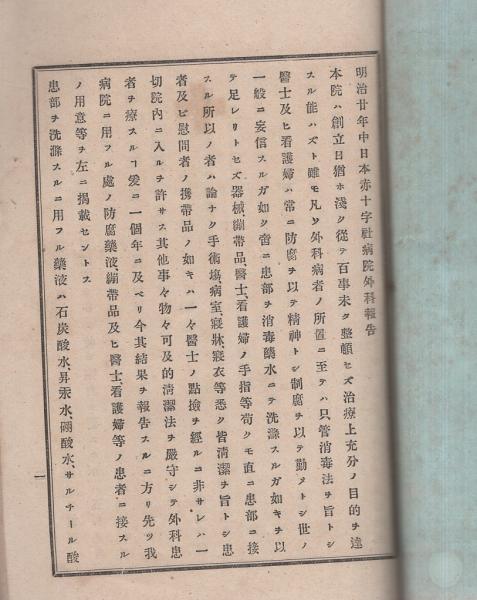 明治廿年中日本赤十字社病院外科報告
本院ハ創立日猶ホ淺ク從テ百事未タ整頓セズ治療上充分ノ目的ヲ達
スル能ハズト雖モ凡ソ外科病者ノ所置ニ至テハ只管消毒法ヲ旨トシ
醫士及ヒ看護婦ハ常ニ防腐ヲ以テ精神トシ制腐ヲ以テ勤メトシ世ノ
一般ニ妄信スルガ如ク啻ニ患部ヲ消毒藥水ニテ洗滌スルガ如キヲ以
テ足レリトセズ器械、繃帶品、醫士、看護婦ノ手指等苟クモ直ニ患部ニ接
スル所以ノ者ハ論ナク手術塲病室、寢牀寢衣等悉ク皆淸潔ヲ旨トシ患
者及ヒ慰問者ノ携帶品ノ如キハ一々醫士ノ點撿ヲ經ルニ非サレハ一
切院內ニ入ルヲ許サス其他事々物々可及的淸潔法ヲ嚴守シテ外科患
者ヲ療スルヿ爰ニ一個年ニ及ベリ今其結果ヲ報告スルニ方リ先ツ我
病院ニ用フル處ノ防腐藥液、繃帶品及ヒ醫士、看護婦等ノ患者ニ接スル
ノ用意等ヲ左ニ揭載セントス
患部ヲ洗滌スルニ用フル藥液ハ石炭酸水、昇汞水、硼酸水、サルチール酸
一